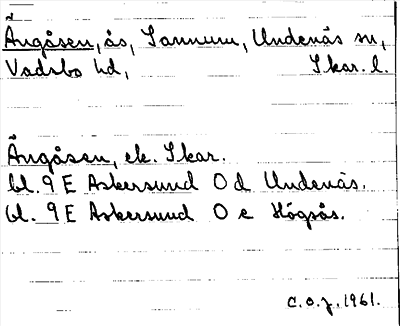 Ängåsen, ås, Sannum, Undenäs sn,
Vadsbo hd, Skar. l.
Ängåsen, ek. Skar.
bl. 9 E Askersund O d Undenäs.
bl. 9 E Askersund O e Högsås.
C.O.J. 1961.